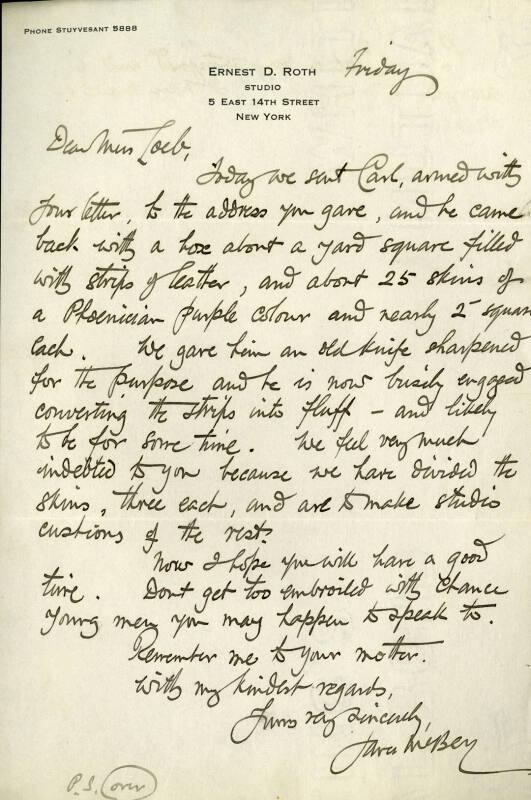 PHONE STUYVESANT 5888
ERNEST D. ROTH
STUDIO
5 EAST 14TH STREET
NEW YORK
Friday
Dear Miss Loeb,
Today we sent Carl, armed with
your letter, to the address you gave, and he came
back with a box about a yard square filled
with strips of leather, and about 25 skins of
a Phoenician purple colour and nearly 2' square
each. We gave him an old knife sharpened
for the purpose and he is now busily engaged
converting the strips into fluff – and likely
to be for some time. We feel very much
indebted to you because we have divided the
skins, three each, and are to make studio
custions of the rest.
Now I hope you will have a good
time. Dont get too embroiled with chance
young men you may happen to speak to.
Remember me to your mother.
With my kindest regards,
Yours very sincerely,
James McBey
P.S. over